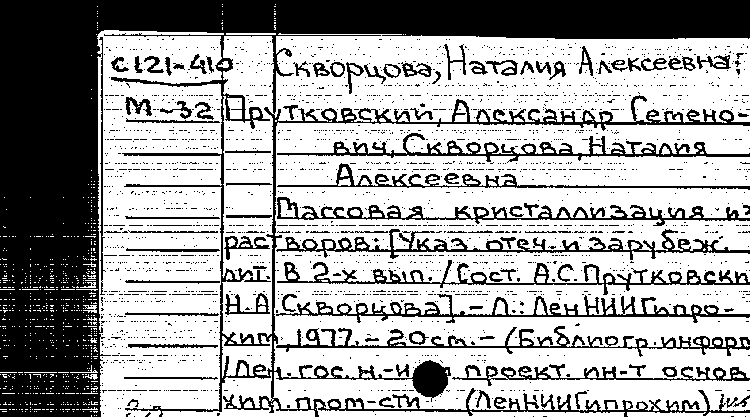 с121-410 Скворцова, Наталия Алексеевна:
М-32 Прутковский, Александр Семено-
вич, Скворцова, Наталия
Алексеевна
Массовая кристаллизация из
растворов: [Указ. отеч. и зарубеж.
лит. В 2-х вып. / Сост. А.С. Прутковски
Н.А. Скворцова]. - Л.: ЛенНИИГипро-
хим, 1977. - 20 см. - (Библиогр. информ
/ Лен. гос. н.-и проект. ин-т основ
хим. пром-сти (ЛенНИИГипрохим)